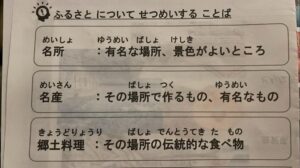 ふるさと について せつめいする ことば
めいしょ ゆうめい ばしょ けしき
名所 ：有名な場所、景色がよいところ
めいさん ばしょ つく ゆうめい
名産 ：その場所で作るもの、有名なもの
きょうどりょうり ばしょ でんとうてき た もの
郷土料理 ：その場所の伝統的な食べ物